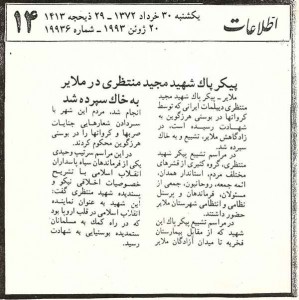 اطلاعات
یکشنبه ۳۰ خرداد ۱۳۷۲ - ۲۹ ذیحجه ۱۴۱۳
۲۰ ژوئن ۱۹۹۳ - شماره ۱۹۹۳۶
۱۴
پیکر پاک شهید مجید منتظری در ملایر
به خاک سپرده شد
ملایر - پیکر پاک شهید مجید
منتظری دیپلمات ایرانی که توسط
کرواتها در بوسنی هرزگوین به
شهادت رسیده است، در
زادگاهش ملایر، تشییع و به خاک
سپرده شد.
در مراسم تشییع پیکر شهید
منتظری، گروه کثیری از قشرهای
مختلف مردم، استاندار همدان،
ائمه جمعه، روحانیون، جمعی از
مسئولان، فرماندهان و پرسنل
نظامی و انتظامی شهرستان ملایر
حضور داشتند.
در مراسم تشییع پیکر پاک این
شهید که از مقابل بیمارستان
فخریه تا میدان آزادگان ملایر
انجام شد، مردم این شهر با
سردادن شعارهایی جنایات
صربها و کرواتها را در بوسنی
هرزگوین محکوم کردند.
در این مراسم سرتیپ وحیدی
یکی از فرماندهان سپاه پاسداران
انقلاب اسلامی با تشریح
خصوصیات اخلاقی نیکو و
پسندیده شهید منتظری گفت:
این شهید به عنوان نماینده
انقلاب اسلامی در قلب اروپا بود
که در راه کمک به مسلمانان
ستمدیده بوسنیایی به شهادت
رسید.